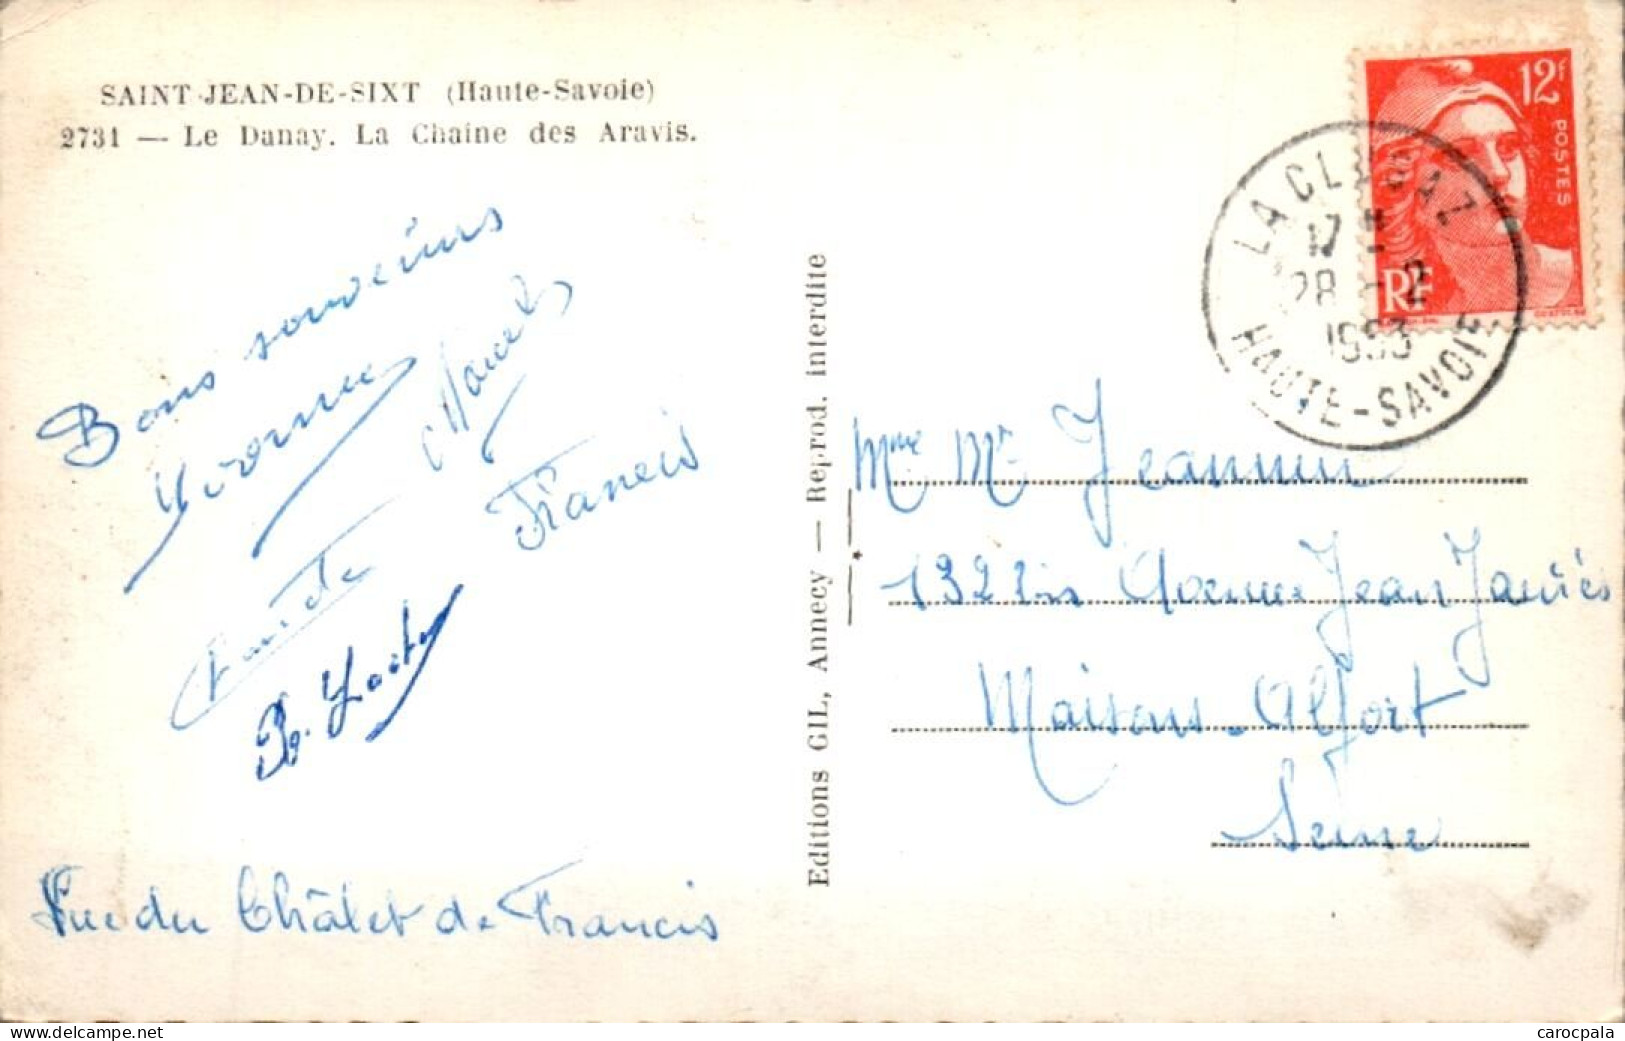 SAINT-JEAN-DE-SIXT (Haute-Savoie)
2731 — Le Danay. La Chaine des Aravis.
Bons souvenirs
Francis
Vue du Châlet de Francis
Editions GIL, Annecy — Reprod. interdite
12F
POSTES
RF
LA CLUSAZ
17
28 - 2
1953
HAUTE-SAVOIE
Mme Mr Jeannin
132 bis Avenue Jean Jaurès
Maisons-Alfort
Seine
carocpala